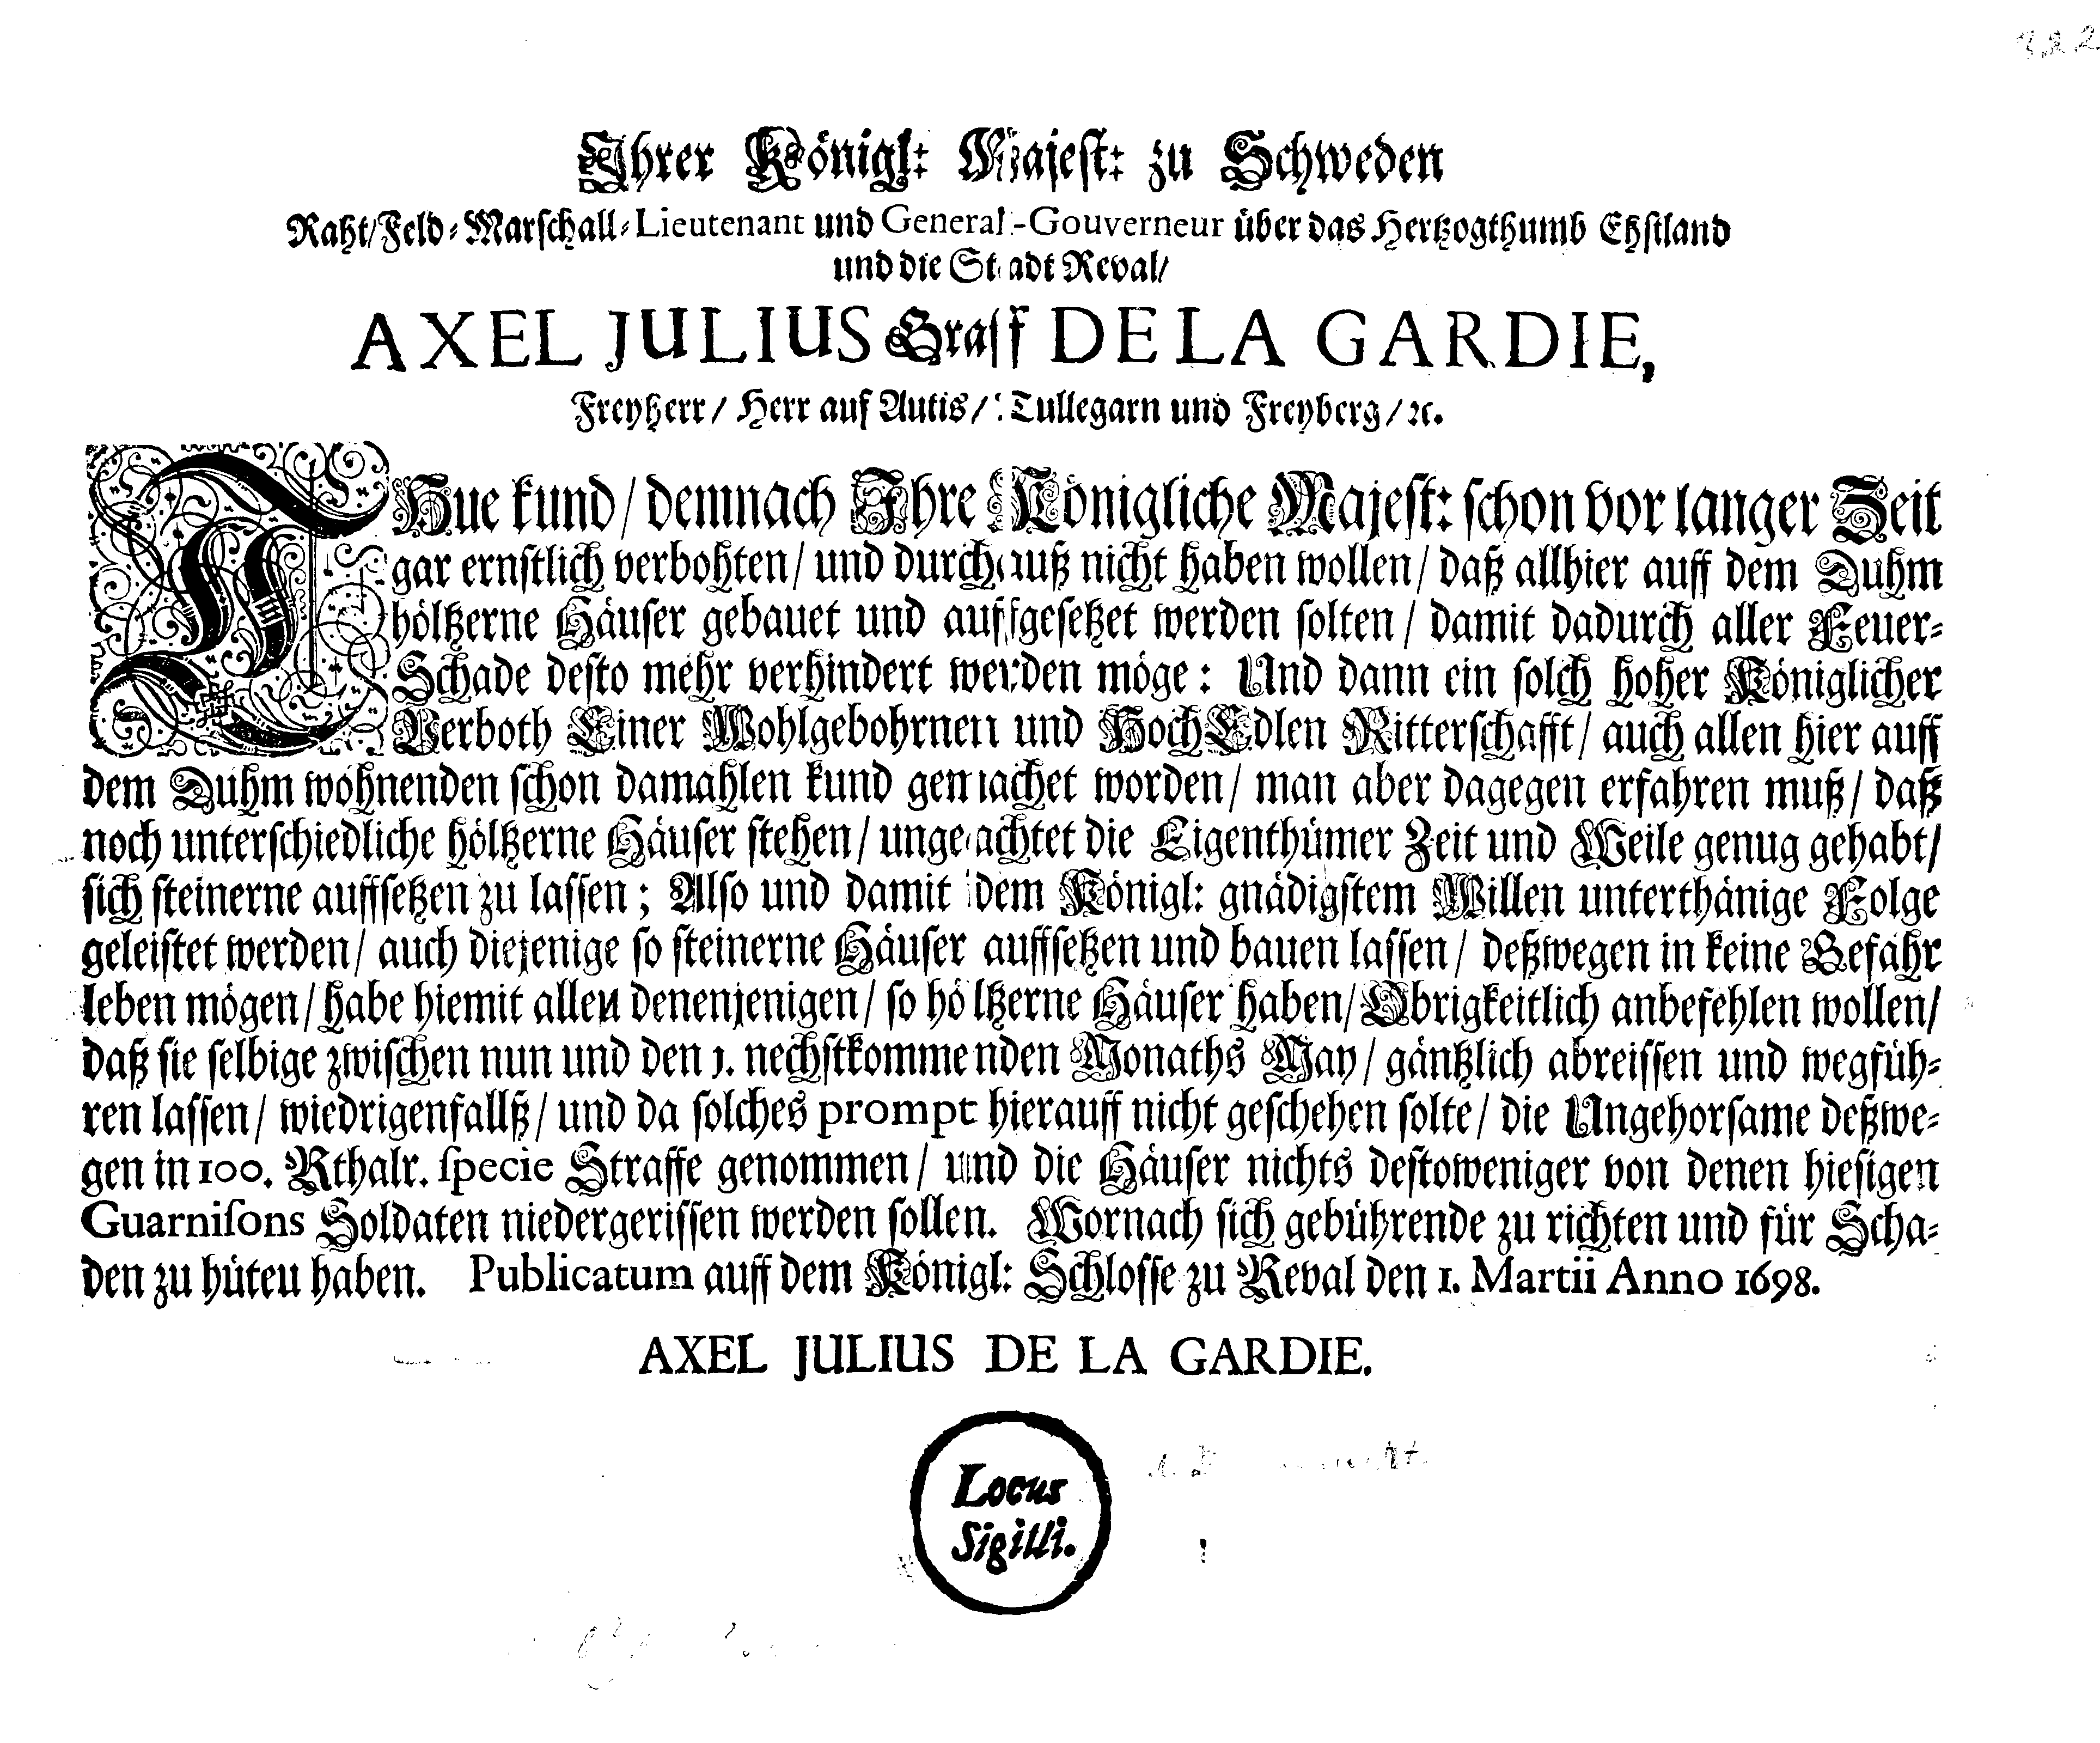 322
Ihrer Königl: Majest: zu Schweden
Raht/Feld-Marschall-Lieutenant und General-Gouverneur über das Hertzogthumb Ehstland
und die Stadt Reval/
AXEL JULIUS Graff DE LA GARDIE,
Freyherr/ Herr auf Autis/ Tullegarn und Freyberg/ ꝛc.
THue kund/ demnach Ihre Königliche Majest: schon vor langer Zeit
gar ernstlich verbohten/ und durchauß nicht haben wollen/ daß allhier auff dem Duhm
höltzerne Häuser gebauet und auffgesetzet werden solten/ damit dadurch aller Feuer-
Schade desto mehr verhindert werden möge: Und dann ein solch hoher Königlicher
Verboth Einer Wohlgebohrnen und HochEdlen Ritterschafft/ auch allen hier auff
dem Duhm wohnenden schon damahlen kund gemachet worden/ man aber dagegen erfahren muß/ daß
noch unterschiedliche höltzerne Häuser stehen/ ungeachtet die Eigenthümer Zeit und Weile genug gehabt/
sich steinerne auffsetzen zu lassen; Also und damit dem Königl: gnädigstem Willen unterthänige Folge
geleistet werden/ auch diejenige so steinerne Häuser auffsetzen und bauen lassen/ deßwegen in keine Gefahr
leben mögen/ habe hiemit allen denenjenigen/ so höltzerne Häuser haben/ Obrigkeitlich anbefehlen wollen/
daß sie selbige zwischen nun und den 1. nechstkommenden Monaths May/ gäntzlich abreissen und wegfüh-
ren lassen/ wiedrigenfallß/ und da solches prompt hierauff nicht geschehen solte/ die Ungehorsame deßwe-
gen in 100. Rthalr. specie Straffe genommen/ und die Häuser nichts destoweniger von denen hiesigen
Guarnisons Soldaten niedergerissen werden sollen. Wornach sich gebührende zu richten und für Scha-
den zu hüteu haben. Publicatum auff dem Königl: Schlosse zu Reval den 1. Martii Anno 1698.
AXEL JULIUS DE LA GARDIE.
Locus
Sigilli.